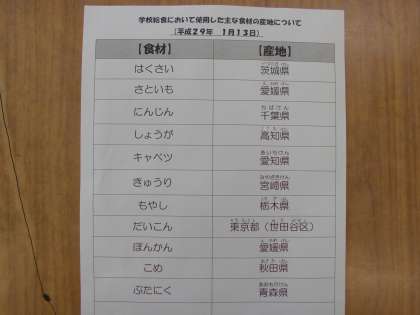 学校給食において使用した主な食材の産地について
（平成２９年　１月１３日）
【食材】　【産地】
はくさい　茨城県
さといも　愛媛県
にんじん　千葉県
しょうが　高知県
キャベツ　愛知県
きゅうり　宮崎県
もやし　栃木県
だいこん　東京都（世田谷区）
ぽんかん　愛媛県
こめ　秋田県
ぶたにく　青森県